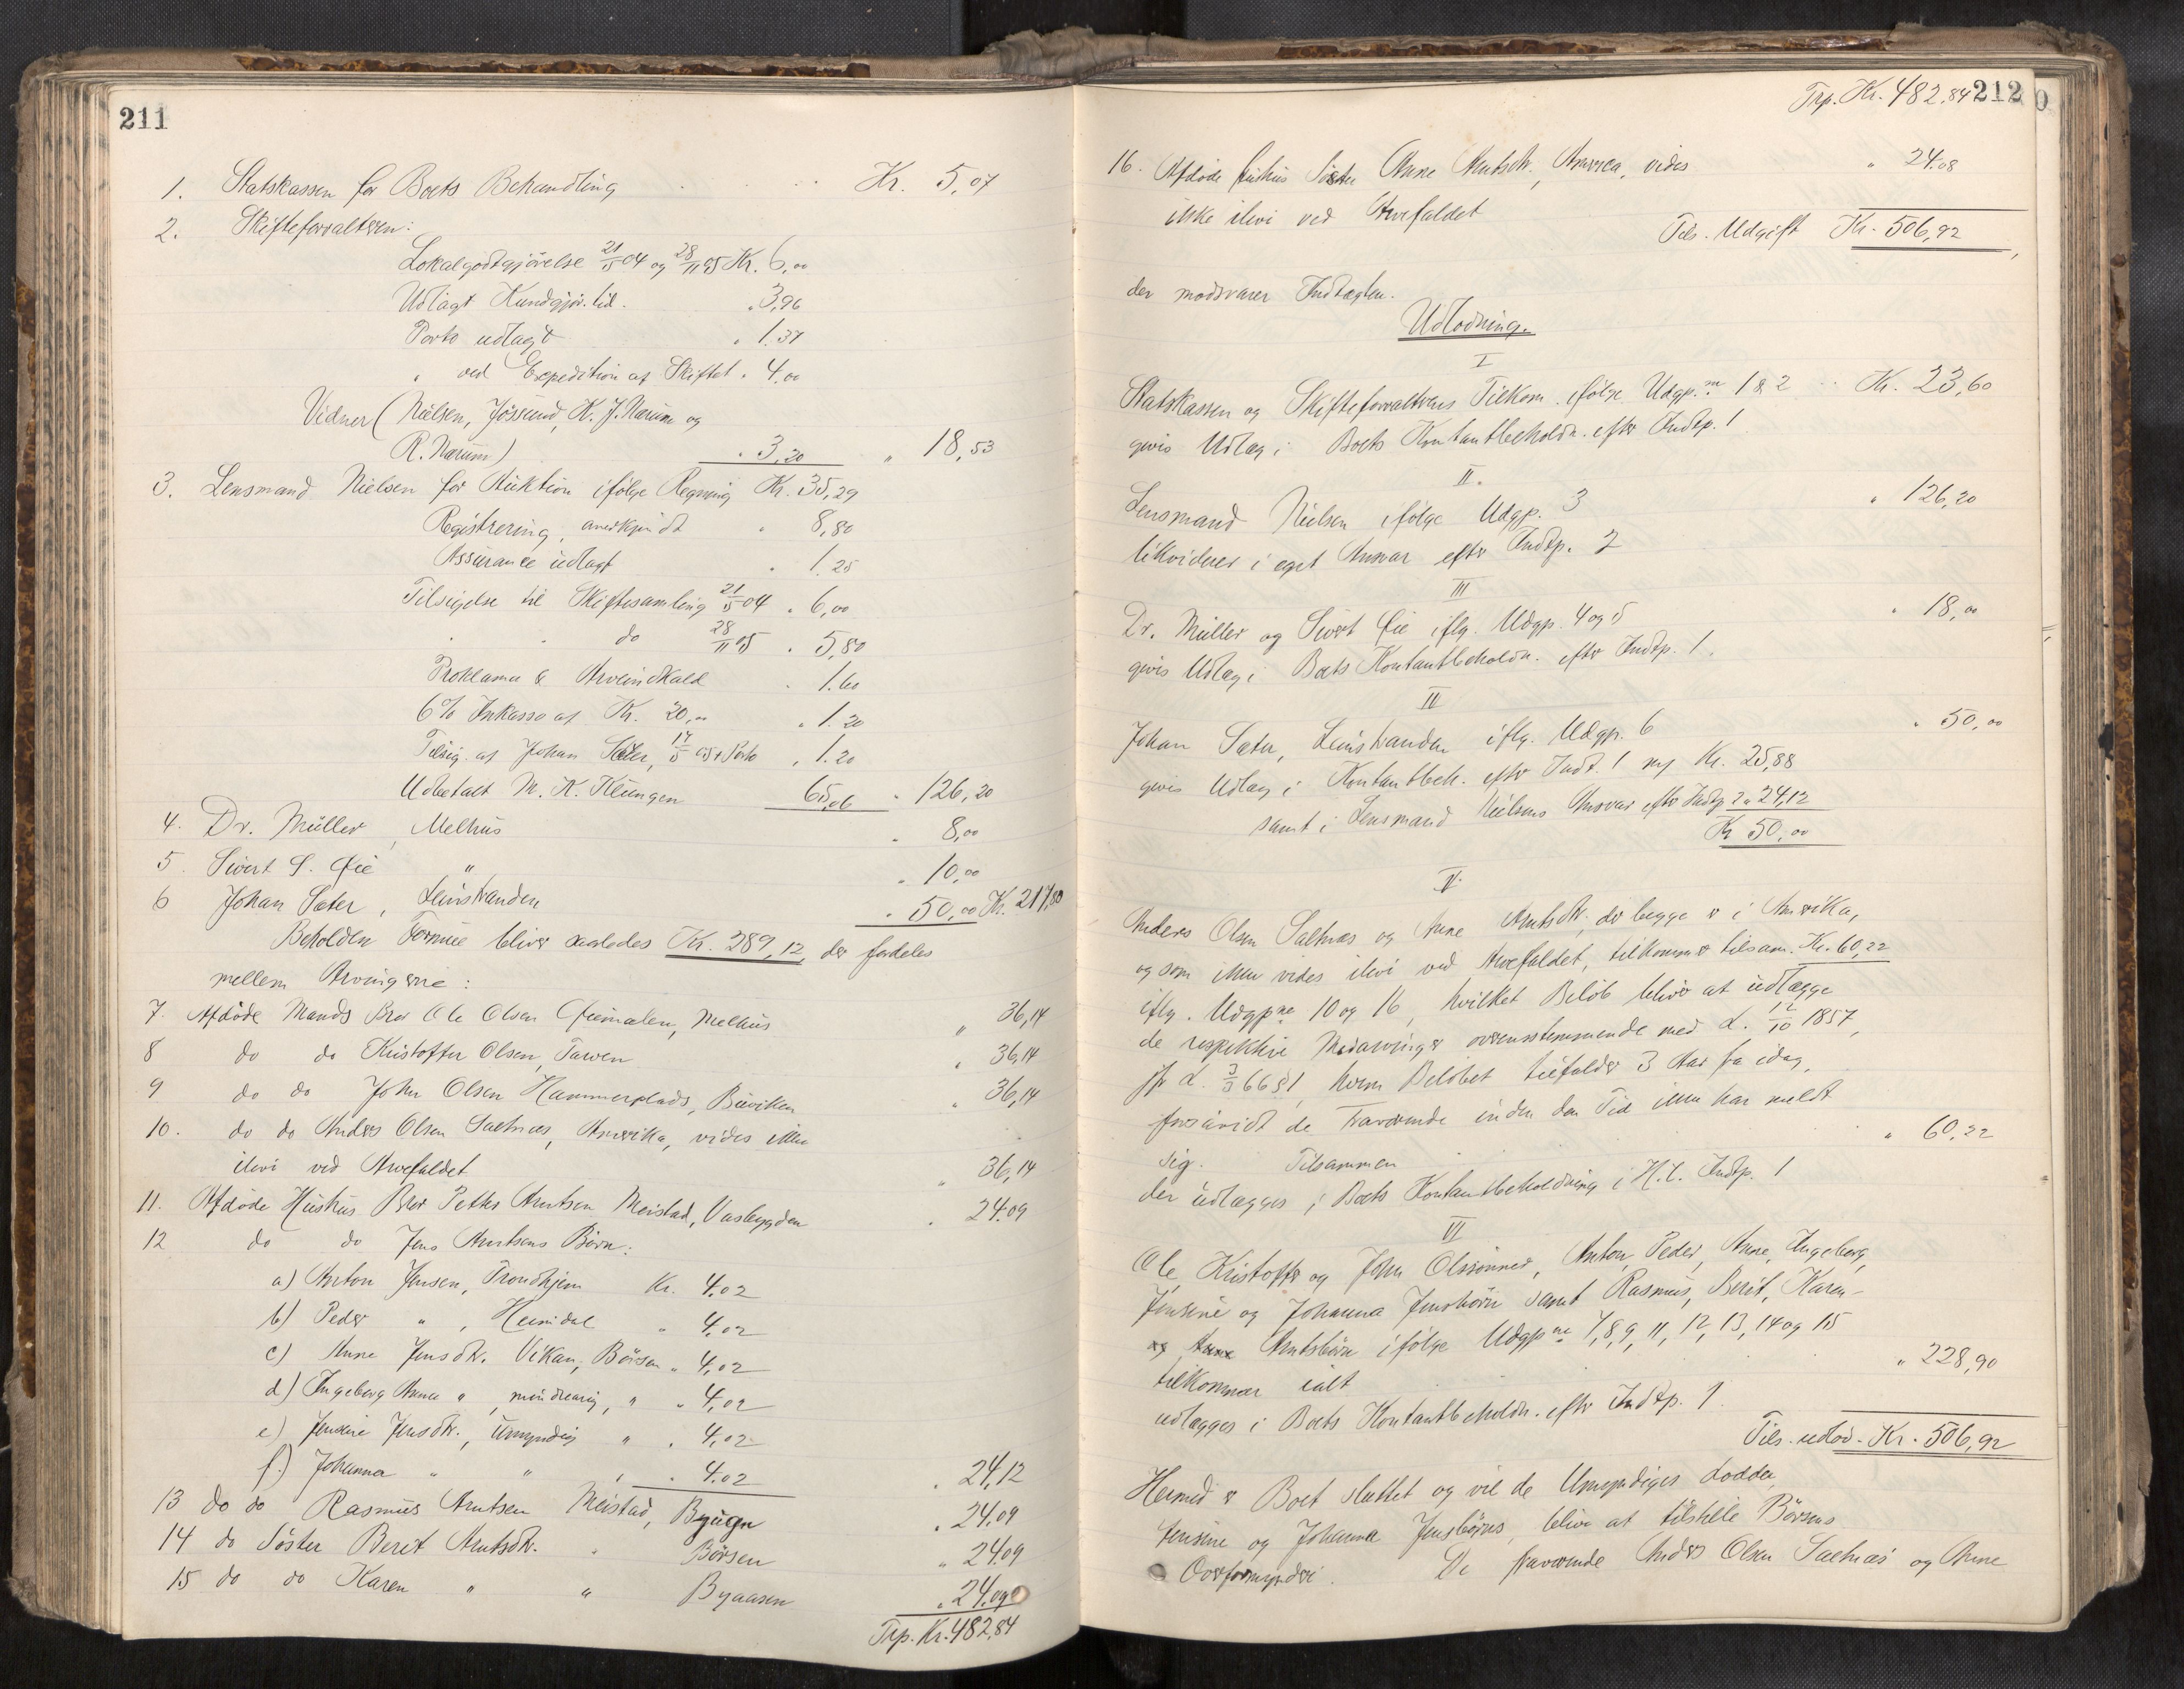 211
1. Statskassen for Boets Behandling Kr. 5,07
2. Skifteforvalteren:
Lokalgodtgjörelse 21/5 04 og 28/11 05 Kr. 6,00
Udlagt Kundgjör. tid. " 3,96
Porto udlagt " 1.37
" ved Expedition af Skiftet " 4,00
Vidner (Nielsen, Jössund, K. J. Nærum og
R. Nærum) " 3,20 " 18,53
3. Lensmand Nielsen for Auktion ifölge Regning Kr. 35,29
Registrering, anerkjendt " 8,80
Assurance udlagt " 1.25
Tilsigelse til Skiftesamling 21/5 04 " 6,00
" " do 28/11 05 " 5,80
Proklama & Arveindkald " 1.60
6% Inkasso af Kr. 20,00 " 1.20
Tilsig. af Johan Sæter, 17/5 05 + Porto " 1.20
Udbetalt M. K. Klungen 65,06 " 126,20
4. Dr. Müller, Melhus " 8,00
5. Sivert S. Öie " " 10,00
6 Johan Sæter, Leinstranden " 50,00 Kr. 217,80
Beholden Formue bliver saaledes Kr. 289,12, der fordeles
mellem Arvingerne:
7. Afdöde Mands Bror Ole Olsen Öiemalen, Melhus " 36,14
8 do do Kristoffer Olsen, " 36,14
9 do do John Olsen Hammerplads, Buviken " 36,14
10. do do Anders Olsen Saltnæs, Amerika, vides ikke
ilive ved Arvefaldet " 36,14
11. Afdöde Hustrus Bror Petter Arntsen Meistad, " 24.09
12 do do Jens Arntsens Börn:
a) Anton Jensen, Trondhjem Kr. 4.02
b) Peder " , Heimdal " 4.02
c) Anne Jensdtr. Vikan, Börsen " 4,02
d) Ingeborg Anna " , mindreaarig, " " 4,02
e) Jensine Jensdtr., Umyndig " " 4,02
f.) Johanna " " " " 4.02 " 24,12
13 do do Rasmus Arntsen Meistad, Byugn " 24.09
14 do Söster Berit Arntsdtr. " Börsen " 24.09
15 do do Karen " " Byaasen " 24.09
Trp. Kr. 482,84
Trp. Kr. 482,84 212
16. Afdöde Hustrus Söster Anne Arntsdtr., America, vides " 24.08
ikke ilive ved Arvefaldet
Tils. Udgift Kr. 506,92,
der modsvarer Indtægten.
Udlodning.
I
Statskassen og Skifteforvalterens Tilkom. ifölge Udgp. ne 1 & 2 Kr. 23,60
gives Udlæg i Boets Kontantbeholdn. efter Indtp. 1
II.
Lensmand Nielsen ifölge Udgp. 3 " 126,20
likvideres i eget Ansvar efter Indtp. 2
III
Dr. Müller og Sivert Öie iflg. Udgp. 4 og 5 " 18,00
gives Udlæg i Boets Kontantbeholdn. efter Indtp. 1.
IV
Johan Sæter, Leinstranden iflg. Udgp. 6 " 50,00
gives Udlæg i Kontantbeh. efter Indt. 1 Kr. 25,88
samt i Lensmand Nielsens Ansvar efter Indtp. 2 " 24,12
Kr 50,00
V.
Anders Olsen Saltnæs og Anne Arntsdtr, der begge er i Amerika,
og som ikke vides ilive ved Arvefaldet, tilkommer tilsam. Kr. 60,22
iflg. Udgp ne 10 og 16, hvilket Belöb bliver at udlægge
de respektive Medarvinger overensstemmende med L. 12/10 1857,
jfr L. 3/3 66 § 1, hvem Belöbet tilfalder 3 Aar fra idag,
forsavidt de Fraværende inden den Tid ikke har meldt
sig. Tilsammen " 60,22
der udlægges i Boets Kontantbeholdning i H.t. Indtp. 1
VI
Ole, Kristoffer og John Olssönner, Anton, Peder, Anne, Ingeborg,
Jensine og Johanna Jensbörn samt Rasmus, Berit, Karen
og Anne Arntsbörn ifölge Udgp ne 7, 8, 9, 11, 12, 13, 14 og 15
tilkommer ialt " 228,90
udlægges i Boets Kontantbeholdn. efter Indtp. 1.
Tils. udlod. Kr. 506,92
Hermed er Boet sluttet og vil de Umyndiges Lodder,
Jensine og Johanna Jensbörns, blive at tilstille Börsens
Overformynderi. De fraværende Anders Olsen Saltnæs og Anne